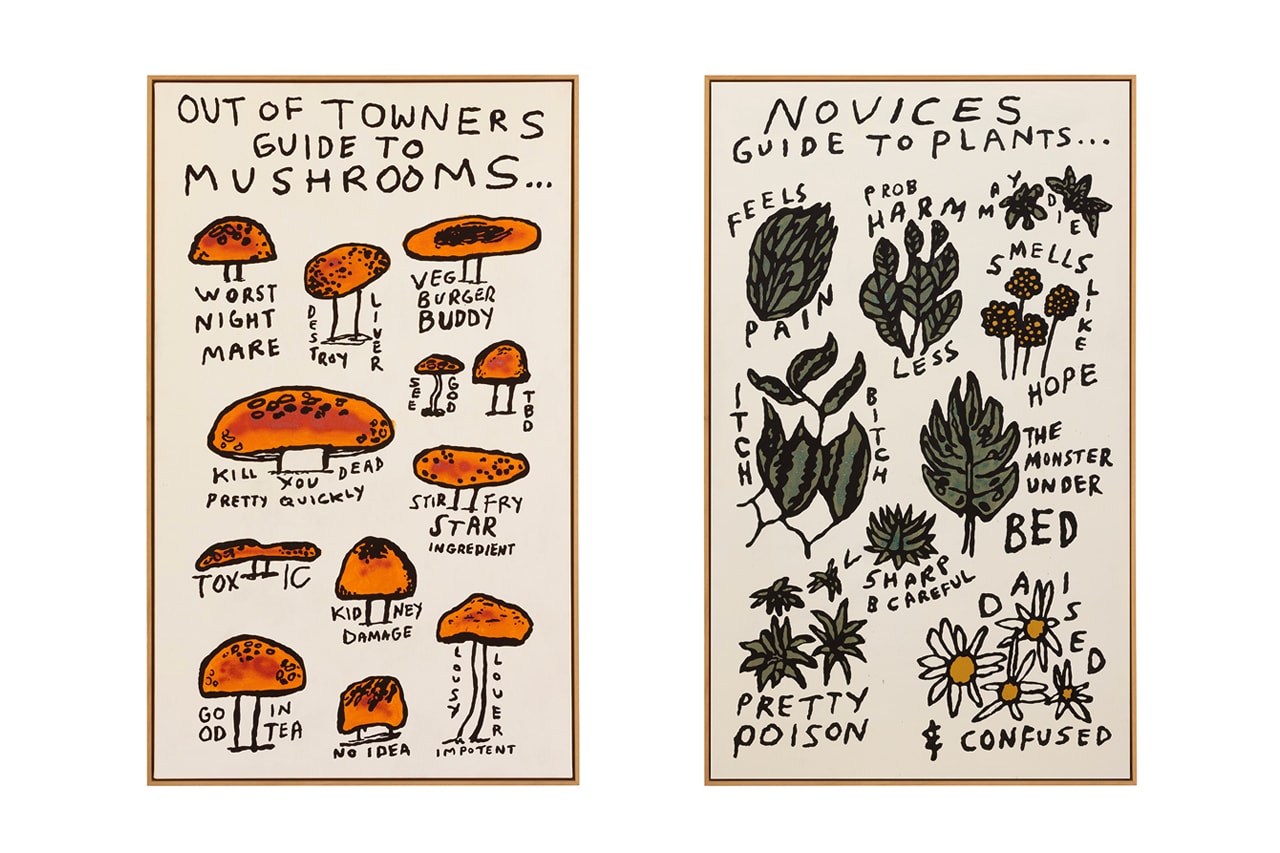 OUT OF TOWNERS
GUIDE TO
MUSHROOMS...
WORST
NIGHT
MARE
DESTROY
LIVER
VEG
BURGER
BUDDY
SEE
GOD
TBD
KILL YOU DEAD
PRETTY QUICKLY
STIR FRY
STAR
INGREDIENT
TOXIC
KIDNEY
DAMAGE
GO
OD
IN
TEA
NO IDEA
LOUSY
LOVER
IMPOTENT
NOVICES
GUIDE TO PLANTS...
FEELS
PAIN
PROB
HARM
LESS
MAY
DIE
SMELLS
LIKE
HOPE
ITCH
BITCH
THE
MONSTER
UNDER
BED
SHARP
B CAREFUL
PRETTY
POISON
DAISED
& CONFUSED